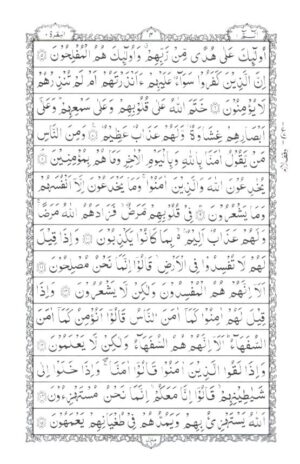 البقرة ٢
٣
الٓمّٓ ١
اُولٰٓئِكَ عَلٰى هُدًى مِّنْ رَّبِّهِمْ ۙ وَاُولٰٓئِكَ هُمُ الْمُفْلِحُوْنَ
اِنَّ الَّذِيْنَ كَفَرُوْا سَوَآءٌ عَلَيْهِمْ ءَاَنْذَرْتَهُمْ اَمْ لَمْ تُنْذِرْهُمْ
لَا يُؤْمِنُوْنَ خَتَمَ اللّٰهُ عَلٰى قُلُوْبِهِمْ وَعَلٰى سَمْعِهِمْ ؕ وَعَلٰٓى
اَبْصَارِهِمْ غِشَاوَةٌ ۫ وَّلَهُمْ عَذَابٌ عَظِيْمٌ وَمِنَ النَّاسِ
مَنْ يَّقُوْلُ اٰمَنَّا بِاللّٰهِ وَبِالْيَوْمِ الْاٰخِرِ وَمَا هُمْ بِمُؤْمِنِيْنَ
يُخٰدِعُوْنَ اللّٰهَ وَالَّذِيْنَ اٰمَنُوْا ۚ وَمَا يَخْدَعُوْنَ اِلَّآ اَنْفُسَهُمْ
وَمَا يَشْعُرُوْنَ فِيْ قُلُوْبِهِمْ مَّرَضٌ ۙ فَزَادَهُمُ اللّٰهُ مَرَضًا ۚ
وَلَهُمْ عَذَابٌ اَلِيْمٌۢ ۙ بِمَا كَانُوْا يَكْذِبُوْنَ وَاِذَا قِيْلَ
لَهُمْ لَا تُفْسِدُوْا فِي الْاَرْضِ ۙ قَالُوْٓا اِنَّمَا نَحْنُ مُصْلِحُوْنَ
اَلَآ اِنَّهُمْ هُمُ الْمُفْسِدُوْنَ وَلٰكِنْ لَّا يَشْعُرُوْنَ وَاِذَا
قِيْلَ لَهُمْ اٰمِنُوْا كَمَآ اٰمَنَ النَّاسُ قَالُوْٓا اَنُؤْمِنُ كَمَآ اٰمَنَ
السُّفَهَآءُ ؕ اَلَآ اِنَّهُمْ هُمُ السُّفَهَآءُ وَلٰكِنْ لَّا يَعْلَمُوْنَ
وَاِذَا لَقُوا الَّذِيْنَ اٰمَنُوْا قَالُوْٓا اٰمَنَّا ۖۚ وَاِذَا خَلَوْا اِلٰى
شَيٰطِيْنِهِمْ ۙ قَالُوْٓا اِنَّا مَعَكُمْ ۙ اِنَّمَا نَحْنُ مُسْتَهْزِءُوْنَ
اَللّٰهُ يَسْتَهْزِئُ بِهِمْ وَيَمُدُّهُمْ فِيْ طُغْيَانِهِمْ يَعْمَهُوْنَ